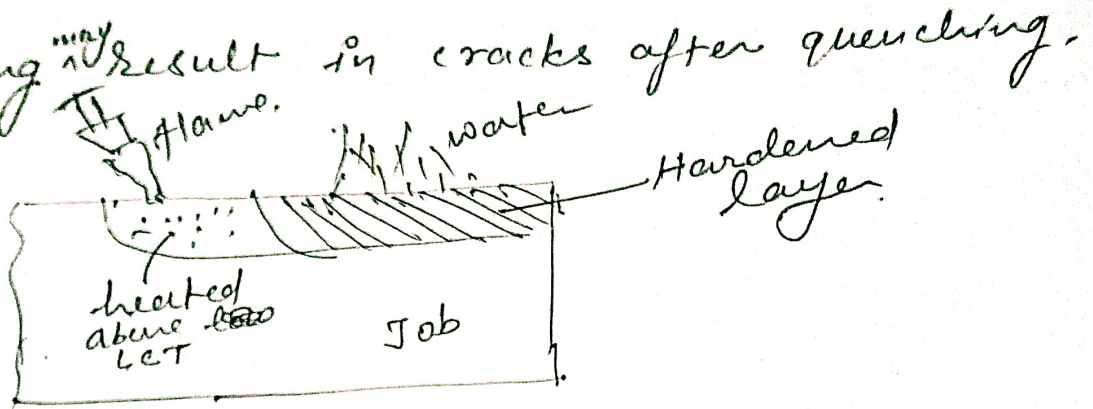 ng may result in cracks after quenching.
flame.
water
Hardened
layer.
heated
above
LCT
Job